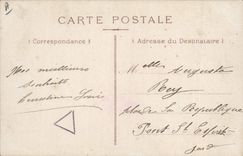 CARTE POSTALE
Correspondance
Adresse du Destinataire
Mes meilleurs
souhaits
Melle Augusta
Rey
place de la République
Pont St Esprit
Gard